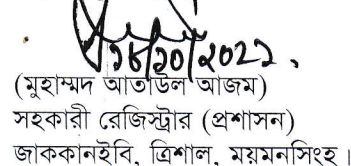 ১৮/১০/২০২২
(মুহাম্মদ আতাউল আজম)
সহকারী রেজিস্ট্রার (প্রশাসন)
জাককানইবি, ত্রিশাল, ময়মনসিংহ।